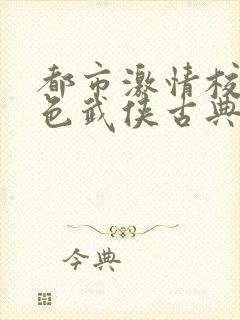 都市激情校
色武侠古典
今典